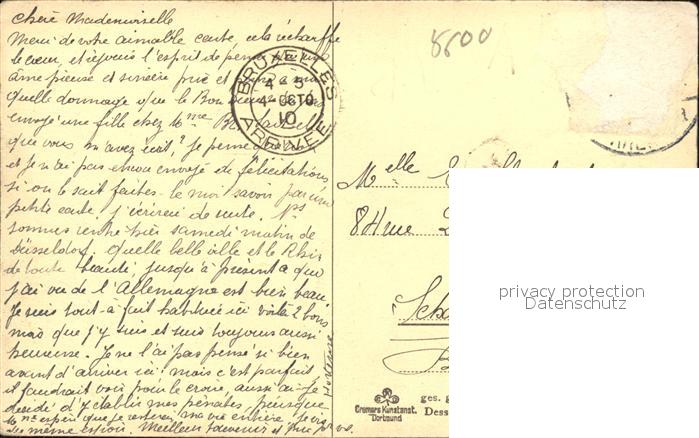 Chère Mademoiselle
Merci de votre aimable carte, cela réchauffe
le cœur, et réjouis l'esprit de
âme pieuse et sincère prie et
Quelle dommage que le Bon
envoyé une fille chez Mme
que vous m'avez écrit? Je pense
et je n'ai pas encore envoyé de félicitations
si on le sait faites-le moi savoir par une
petite carte, j'écrirai de suite. Ns
sommes rentré hier samedi matin de
Düsseldorf. Quelle belle ville et le Rhin
de toute beauté, jusqu'à présent a que
j'ai vu de l'Allemagne est bien beau.
Je suis tout-à-fait habituée ici voilà 2 bons
mois que j'y suis et suis toujours aussi
heureuse. Je ne l'ai pas pensé si bien
avant d'arriver ici mais c'est parfait
il faudrait voir pour le croire, aussi ai-je
décidé d'y établir mes pénates, puisque
que je resterai ma vie entière
même espoir. Meilleur souvenir et
Hortense
BRUXELLES
4-5
4 OCTO
10
ARRIVEE
8600
Melle
84 rue
privacy protection
Datenschutz
ges. g
Cramers Kunstanst.
Dortmund
Dess